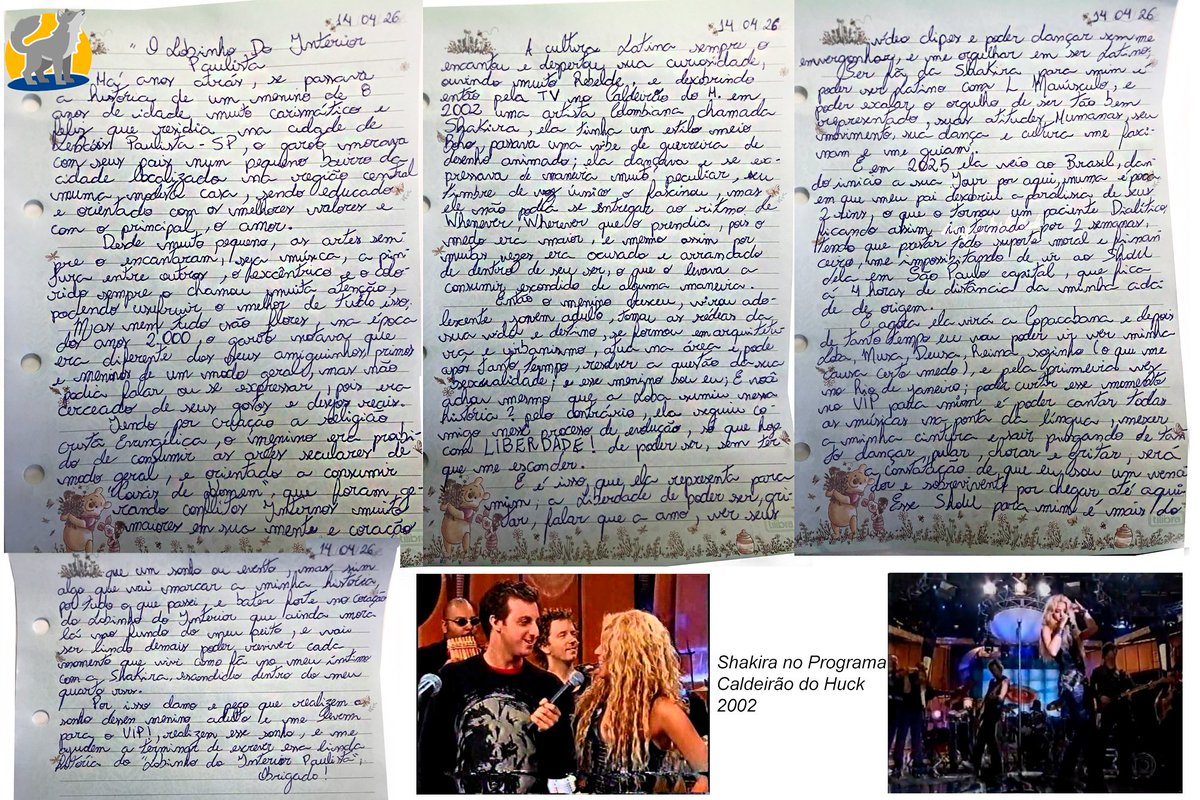 14 04 26
"O Lobinho Do Interior
Paulista
Há anos atrás, se passava
a história de um menino de 8
anos de idade, muito carismático e
feliz que residia na cidade de
Lençóis Paulista - SP, o garoto morava
com seus pais num pequeno bairro da
cidade localizado na região central
numa modesta casa, sendo educado
e orientado com os melhores valores e
com o principal, o amor.
Desde muito pequeno, as artes sem-
pre o encantaram, seja música, a pin-
tura entre outros, o excêntrico e o colo-
rido sempre o chamou muita atenção,
podendo usufruir o melhor de tudo isso.
Mas nem tudo são flores, na época
dos anos 2.000, o garoto notava que
era diferente dos seus amiguinhos, primos
e meninos de um modo geral, mas não
podia falar ou se expressar, pois era
cerceado de seus gostos e desejos reais.
Tendo por criação a religião
cristã Evangélica, o menino era proibi-
do de consumir as artes seculares de
modo geral, e orientado a consumir
"Coisas de homem", que foram ge-
rando conflitos Internos muito
maiores em sua mente e coração
14 04 26
A cultura Latina sempre o
encantou e despertou sua curiosidade,
ouvindo muito Rebelde, e descobrindo
então pela TV, no Caldeirão do H. em
2002 uma artista Colombiana chamada
Shakira, ela tinha um estilo meio
Boho, passava uma vibe de guerreira de
desenho animado; ela dançava e se ex-
pressava de maneira muito peculiar, seu
timbre de voz único o fascinou, mas
ele não podia se entregar ao ritmo de
Whenever, Wherever que o prendia, pois o
medo era maior, e mesmo assim por
muitas vezes era acusado e arrancado
de dentro de seu ser, o que o levava a
consumir escondido de alguma maneira.
Então o menino cresceu, virou ado-
lescente, jovem adulto, tomou as rédeas da
sua vida e destino, se formou em arquitetu-
ra e urbanismo, atua na área e pode
após tanto tempo, resolver a questão da sua
sexualidade; e esse menino sou eu; E você
achou mesmo que a Loba sumiu nessa
história? pelo contrário, ela seguiu co-
migo nesse processo de evolução, só que hoje
com LIBERDADE! de poder ser, sem ter
que me esconder.
E é isso, que ela representa para
mim, a Liberdade de poder ser, gri-
tar, falar que a amo, ver seus
tilibra
14 04 26
vídeo clipes e poder dançar sem me
envergonhar, e me orgulhar em ser Latino,
Ser fã da Shakira para mim é
poder ser Latino com L Maiúsculo, e
poder exalar o orgulho de ser tão bem
representado, suas atitudes Humanas, seu
movimento, sua dança e cultura me fasci-
nam e me guiam.
E em 2025 ela veio ao Brasil, dan-
do início a sua Tour por aqui, numa época
em que meu pai descobriu a paralisia de seus
2 rins, o que o tornou um paciente Dialítico,
ficando assim internado por 2 semanas,
tendo que prestar todo suporte moral e finan-
ceiro, me impossibitando de ir ao Show
dela em São Paulo capital, que fica
a 4 horas de distância da minha cida-
de de origem.
E agora ela virá a Copacabana, e depois
de tanto tempo eu vou poder ir ver minha
Loba, Musa, Deusa, Rainha, sozinho (o que me
causa certo medo), e pela primeira vez
no Rio de Janeiro; poder curtir esse momento
no VIP para mim é poder cantar todas
as músicas na ponta da língua, mexer
a minha cintura e sair pingando de tan-
to dançar, pular, chorar e gritar, será
a constatação de que eu sou um vence-
dor e sobrevivente por chegar até aqui.
Esse Show para mim é mais do
tilibra
14 04 26
que um sonho ou evento, mas sim
algo que vai marcar a minha história
por tudo o que passei e bater forte no coração
do Lobinho do Interior que ainda mora
lá no fundo do meu peito, e vai
ser lindo demais poder reviver cada
momento que vivi como fã no meu íntimo
com a Shakira, escondido dentro do meu
quarto rsrs.
Por isso clamo e peço que realizem o
sonho desse menino adulto e me levem
para o VIP!, realizem esse sonho, e me
ajudem a terminar de escrever essa linda
história do "Lobinho do Interior Paulista",
Obrigado!
Shakira no Programa
Caldeirão do Huck
2002